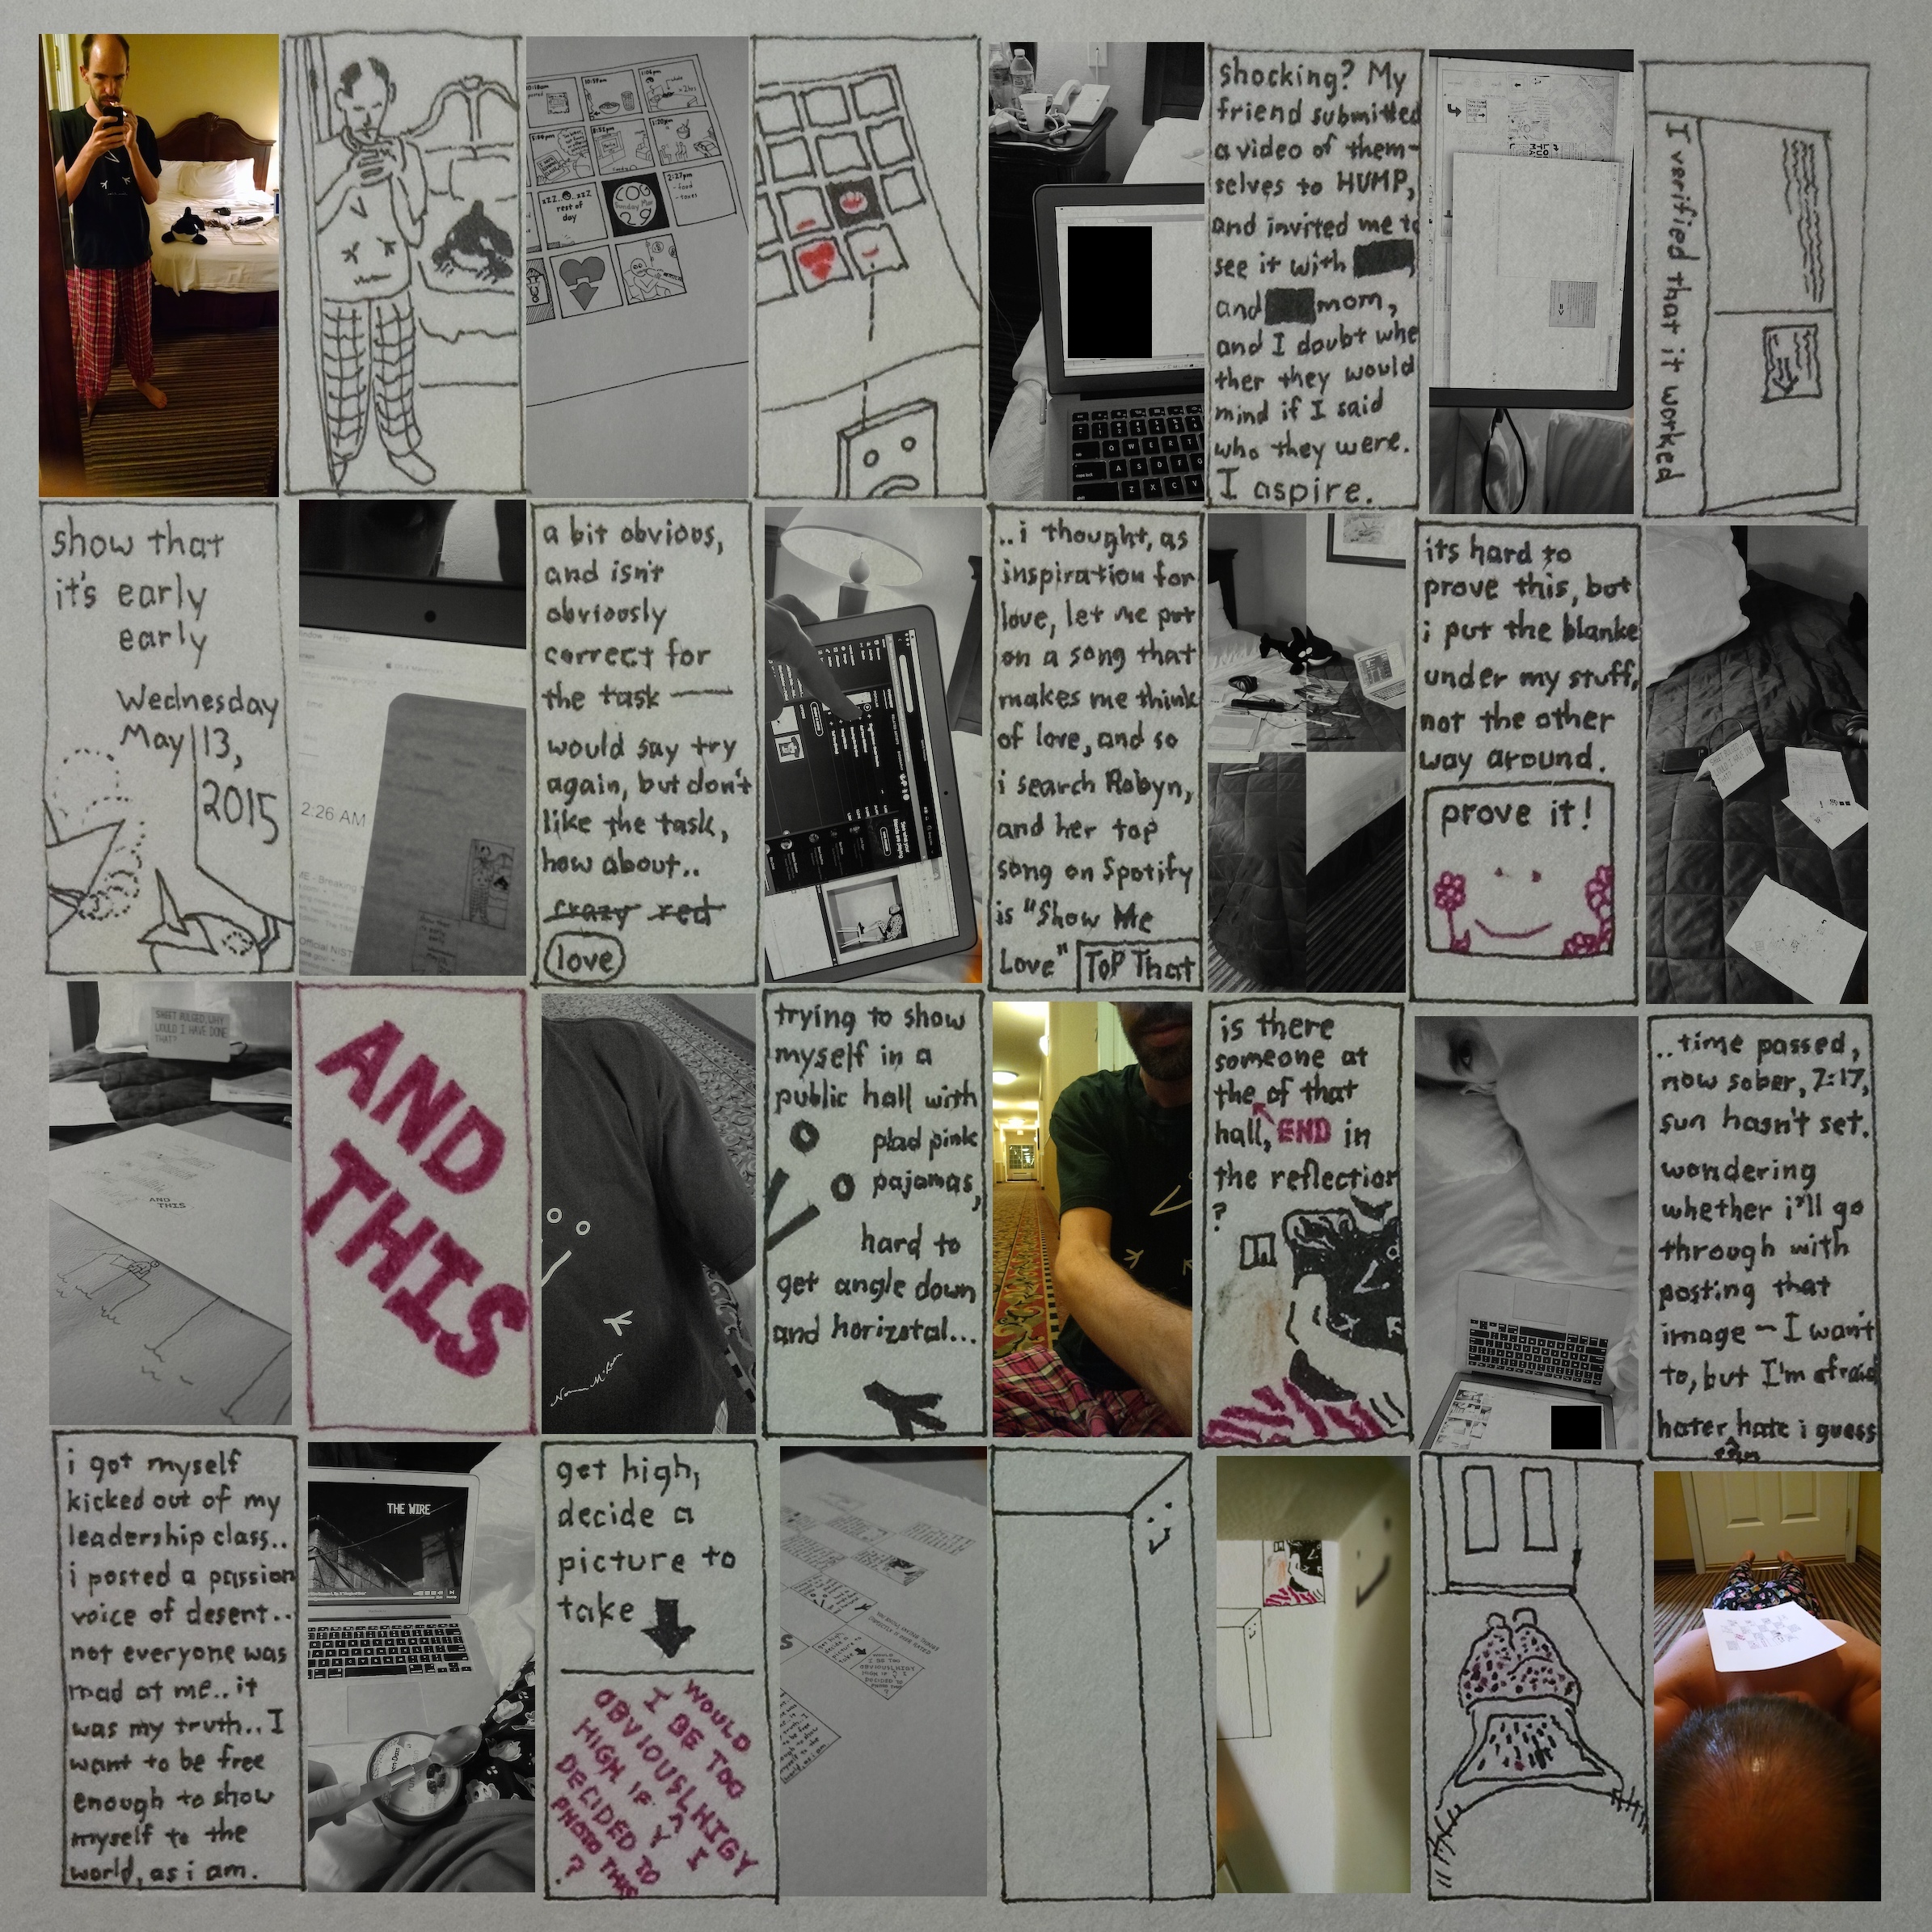 10:18am
10:59am
1:06pm
~2hrs
8:52pm
1:20pm
zzZ zzZ
rest of
day
2:27pm
- food
- taxes
shocking? My
friend submitted
a video of them-
selves to HUMP,
and invited me to
see it with
and mom,
and I doubt whe
ther they would
mind if I said
who they were.
I aspire.
I verified that it worked
show that
it's early
early
Wednesday
May 13,
2015
Window Help
2:26 AM
Official NIST
a bit obvious,
and isn't
obviously
correct for
the task —
would say try
again, but don't
like the task,
how about..
crazy red
love
..i thought, as
inspiration for
love, let me put
on a song that
makes me think
of love, and so
i search Robyn,
and her top
song on Spotify
is "Show Me
Love" TOP That
its hard to
prove this, but
i put the blanke
under my stuff,
not the other
way around.
prove it!
SHEET BULGED, WHY
WOULD I HAVE DONE
THAT?
AND
THIS
AND
THIS
trying to show
myself in a
public hall with
plad pink
pajamas,
hard to
get angle down
and horizotal...
is there
someone at
the of that
hall, END in
the reflection
?
..time passed,
now sober, 7:17,
sun hasn't set.
wondering
whether i'll go
through with
posting that
image - I want
to, but I'm afraid
hater hate i guess
i got myself
kicked out of my
leadership class..
i posted a passion
voice of desent..
not everyone was
mad at me.. it
was my truth.. I
want to be free
enough to show
myself to the
world, as i am.
THE WIRE
get high,
decide a
picture to
take
WOULD
I BE TOO
ABVIOUSLHIGY
HIGH IF I
DECIDED TO
PHOTO THIS
?